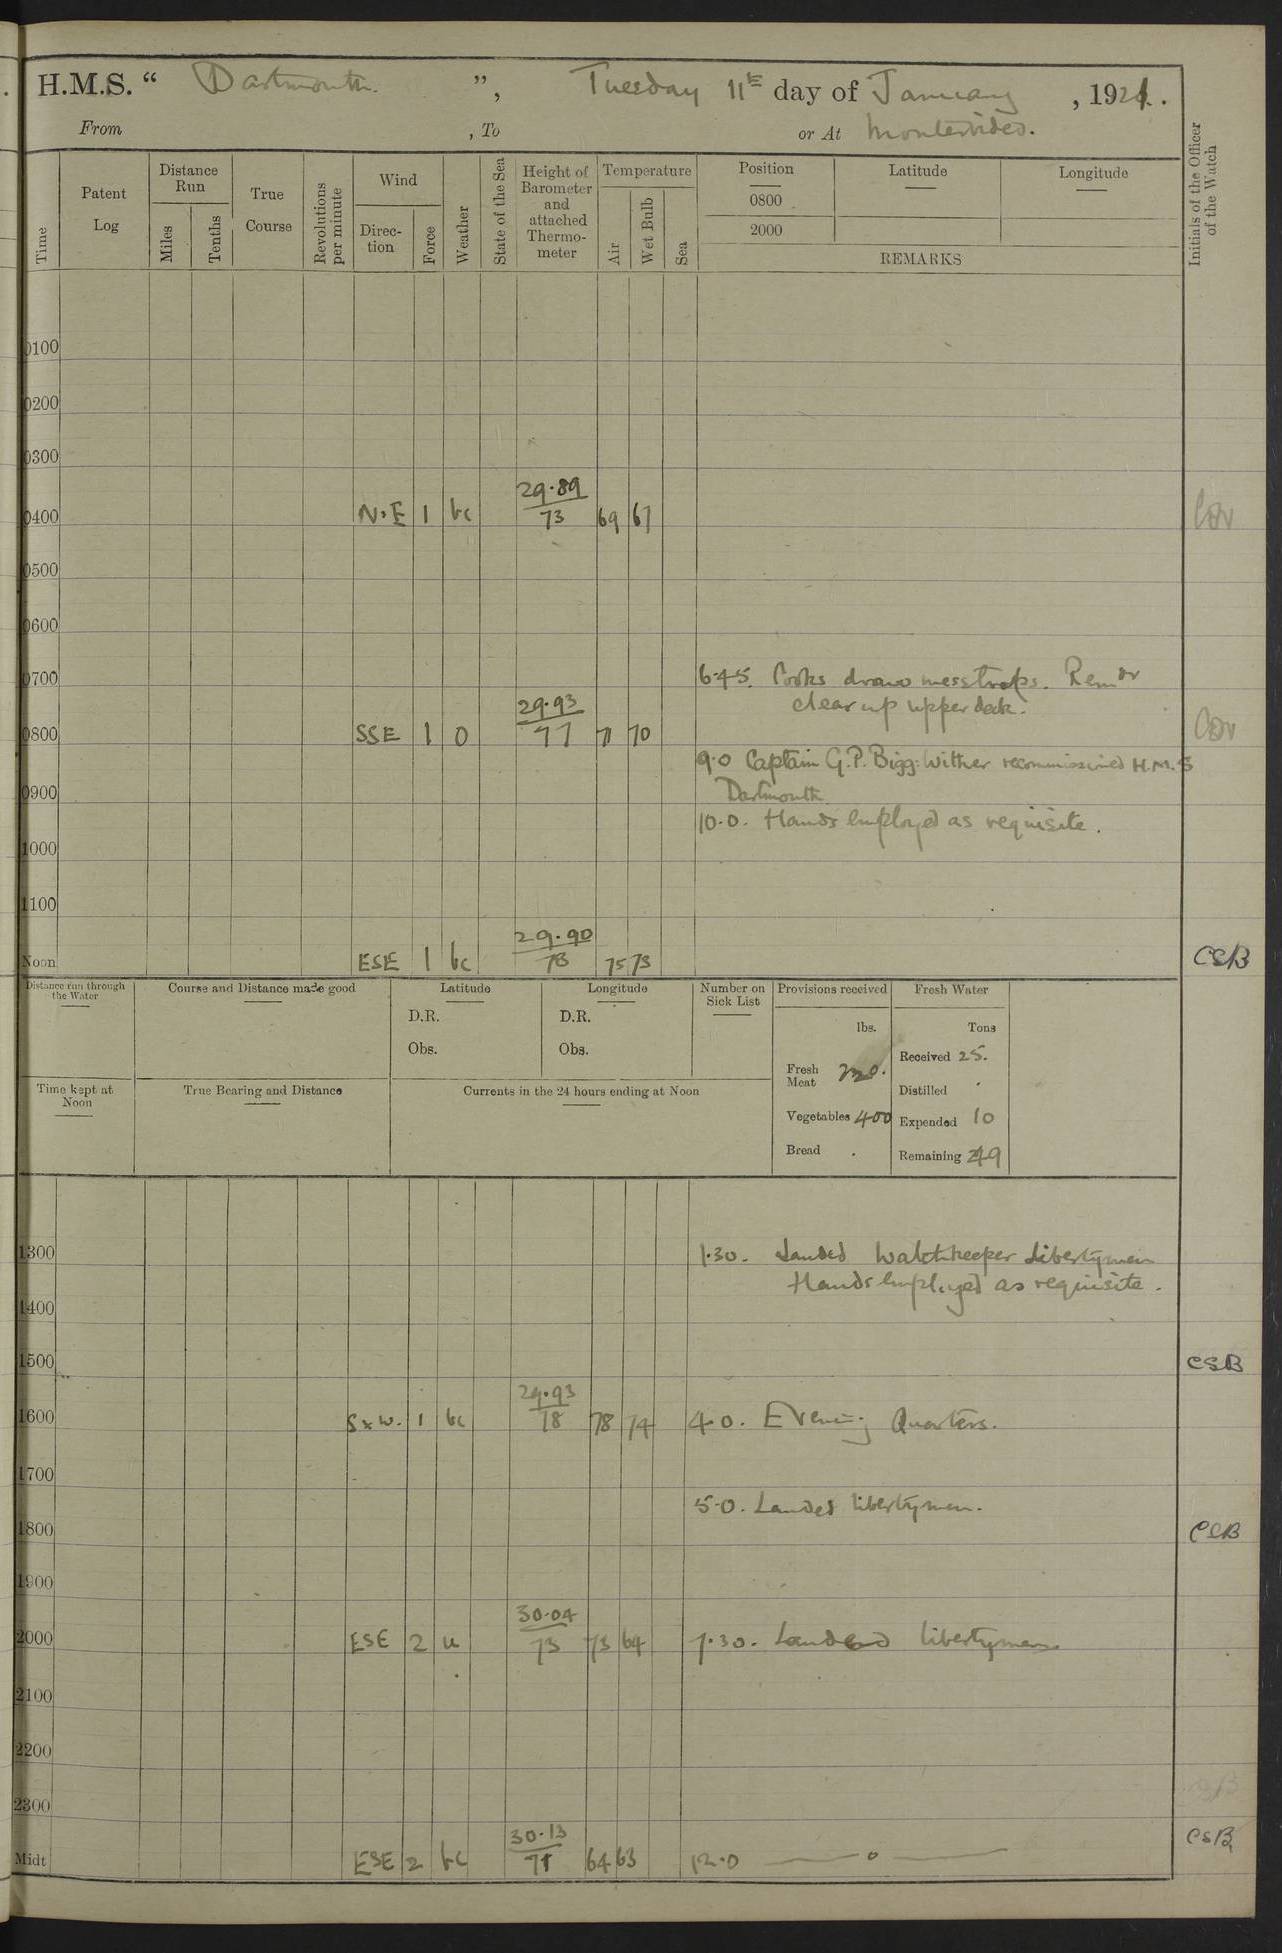 H.M.S. “ Dartmouth. ”, Tuesday 11th day of January , 1921.
From , To or At Montevideo.
Time
Patent Log
Distance Run
Miles
Tenths
True Course
Revolutions per minute
Wind
Direc-tion
Force
Weather
State of the Sea
Height of Barometer and attached Thermo-meter
Temperature
Air
Wet Bulb
Sea
Position
0800
2000
Latitude
Longitude
REMARKS
Initials of the Officer of the Watch
0100
0200
0300
29.89
0400 N.E 1 bc 73 69 67
0500
0600
0700 6.45. Cooks draw messtraps. Remdr
clear up upper deck.
29.93
0800 SSE 1 O 77 71 70
9.0 Captain G.P. Bigg-Wither recommissioned H.M.S
0900 Dartmouth
10.0. Hands employed as requisite.
1000
1100
29.90
Noon ESE 1 bc 78 75 73 CSB
Distance run through the Water
Course and Distance made good
Latitude
D.R.
Obs.
Longitude
D.R.
Obs.
Number on Sick List
Provisions received
lbs.
Fresh Meat
Vegetables 400
Bread .
Fresh Water
Tons
Received 25.
Distilled
Expended 10
Remaining 249
Time kept at Noon
True Bearing and Distance
Currents in the 24 hours ending at Noon
1300 1.30. Landed Watchkeeper Libertymen
Hands employed as requisite.
1400
1500 CSB
29.93
1600 S x W. 1 bc 78 78 74 4.0. Evening Quarters.
1700
5.0. Landed libertymen.
1800 CSB
1900
30.04
2000 ESE 2 u 73 73 64 7.30. Landed libertymen
2100
2200
2300
30.13 CSB
Midt ESE 2 bc 71 64 63 12.0 — o —